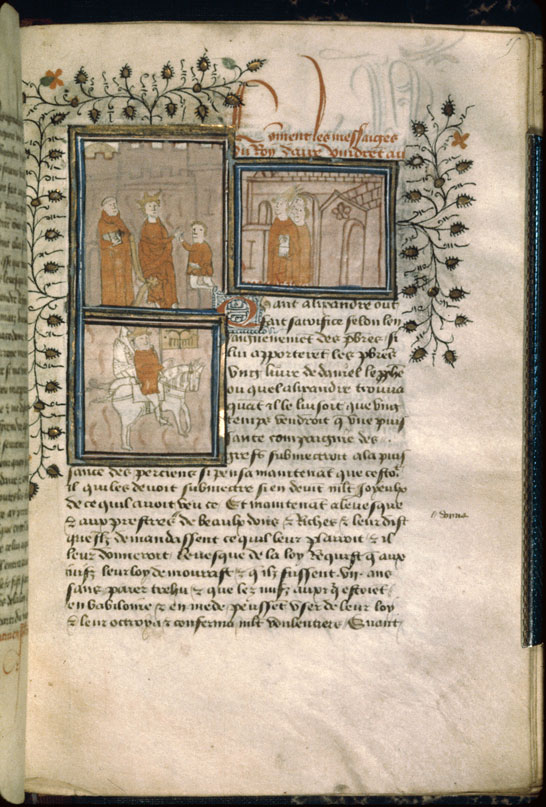 Coment les messaiges
du Roy daire vindret au
Quant alixandre out
fait sacrifice selon len
saignemēt des pbres si
lui apporteret les pbres
ung liure de daniel le pphe
ou quel alixandre trouua
quāt il le lut soit que ung
temps vendroit q une puis
sante compaignie des
grefz submectroit a la puis
sance des perciens si pensa maintenāt que cestoit
il qui les devoit submectre si en devīt mlt Joyeulx
de ce quil auoit veu ce Et maintenāt a levesque
& aux prestres de beaulx dons & Riches & leur dist
questz demandassent ce quil leur plairoit & il
leur donneroit Levesque de la loy Requist q aux
iuifz leur loy demourast & q ilz fussent .vij. ans
sans paier trehu & que les iuifz aux qs estoiēt
en babiloine & en mede peussēt user de leur loy
& leur octroya & conferma mlt voulentiers Quant
donna